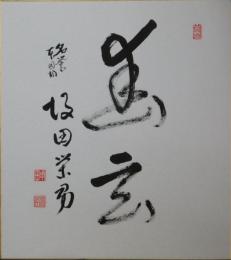 幽玄
名誉
本因坊
坂田栄男